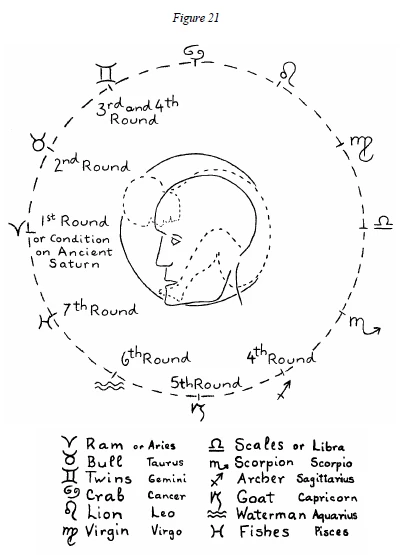 Figure 21
3rd and 4th
Round
2nd Round
1st Round
or Condition
on Ancient
Saturn
7th Round
6th Round
5th Round
4th Round
♈ Ram or Aries
♉ Bull Taurus
♊ Twins Gemini
♋ Crab Cancer
♌ Lion Leo
♍ Virgin Virgo
♎ Scales or Libra
♏ Scorpion Scorpio
♐ Archer Sagittarius
♑ Goat Capricorn
♒ Waterman Aquarius
♓ Fishes Pisces